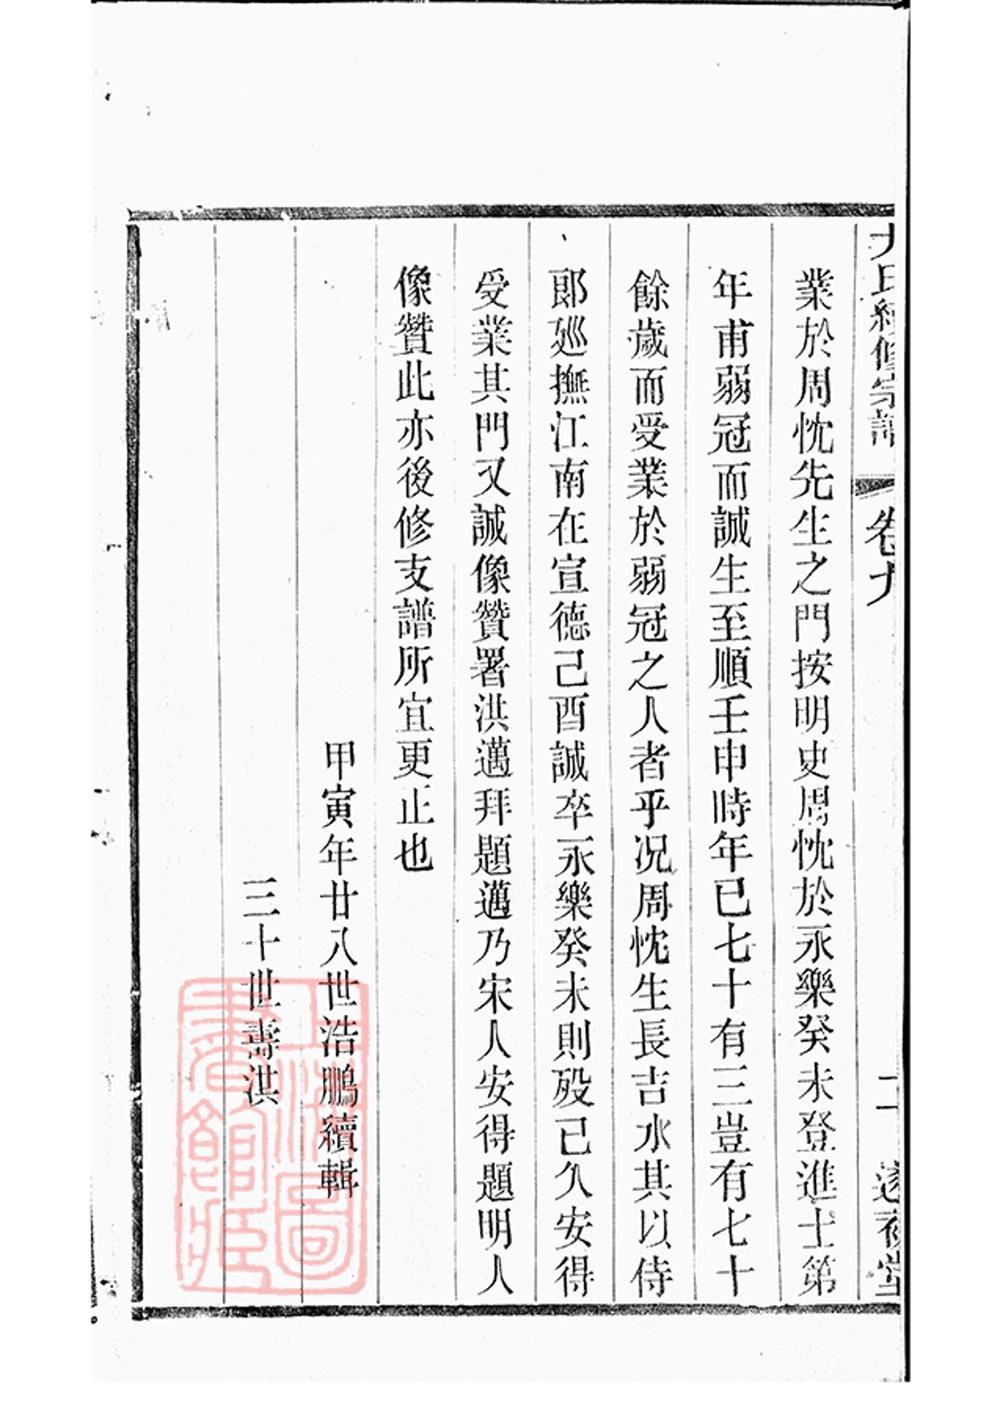 尤氏續修宗譜 卷九 二十 遂初堂
業於周忱先生之門按明史周忱於永樂癸未登進士第
年甫弱冠而誠生至順壬申時年已七十有三豈有七十
餘歲而受業於弱冠之人者乎况周忱生長吉水其以侍
郞廵撫江南在宣德己酉誠卒永樂癸未則殁已久安得
受業其門又誠像贊署洪邁拜題邁乃宋人安得題明人
像贊此亦後修支譜所宜更止也
甲寅年廿八世浩鵬續輯
三十世壽洪
上海圖書館藏